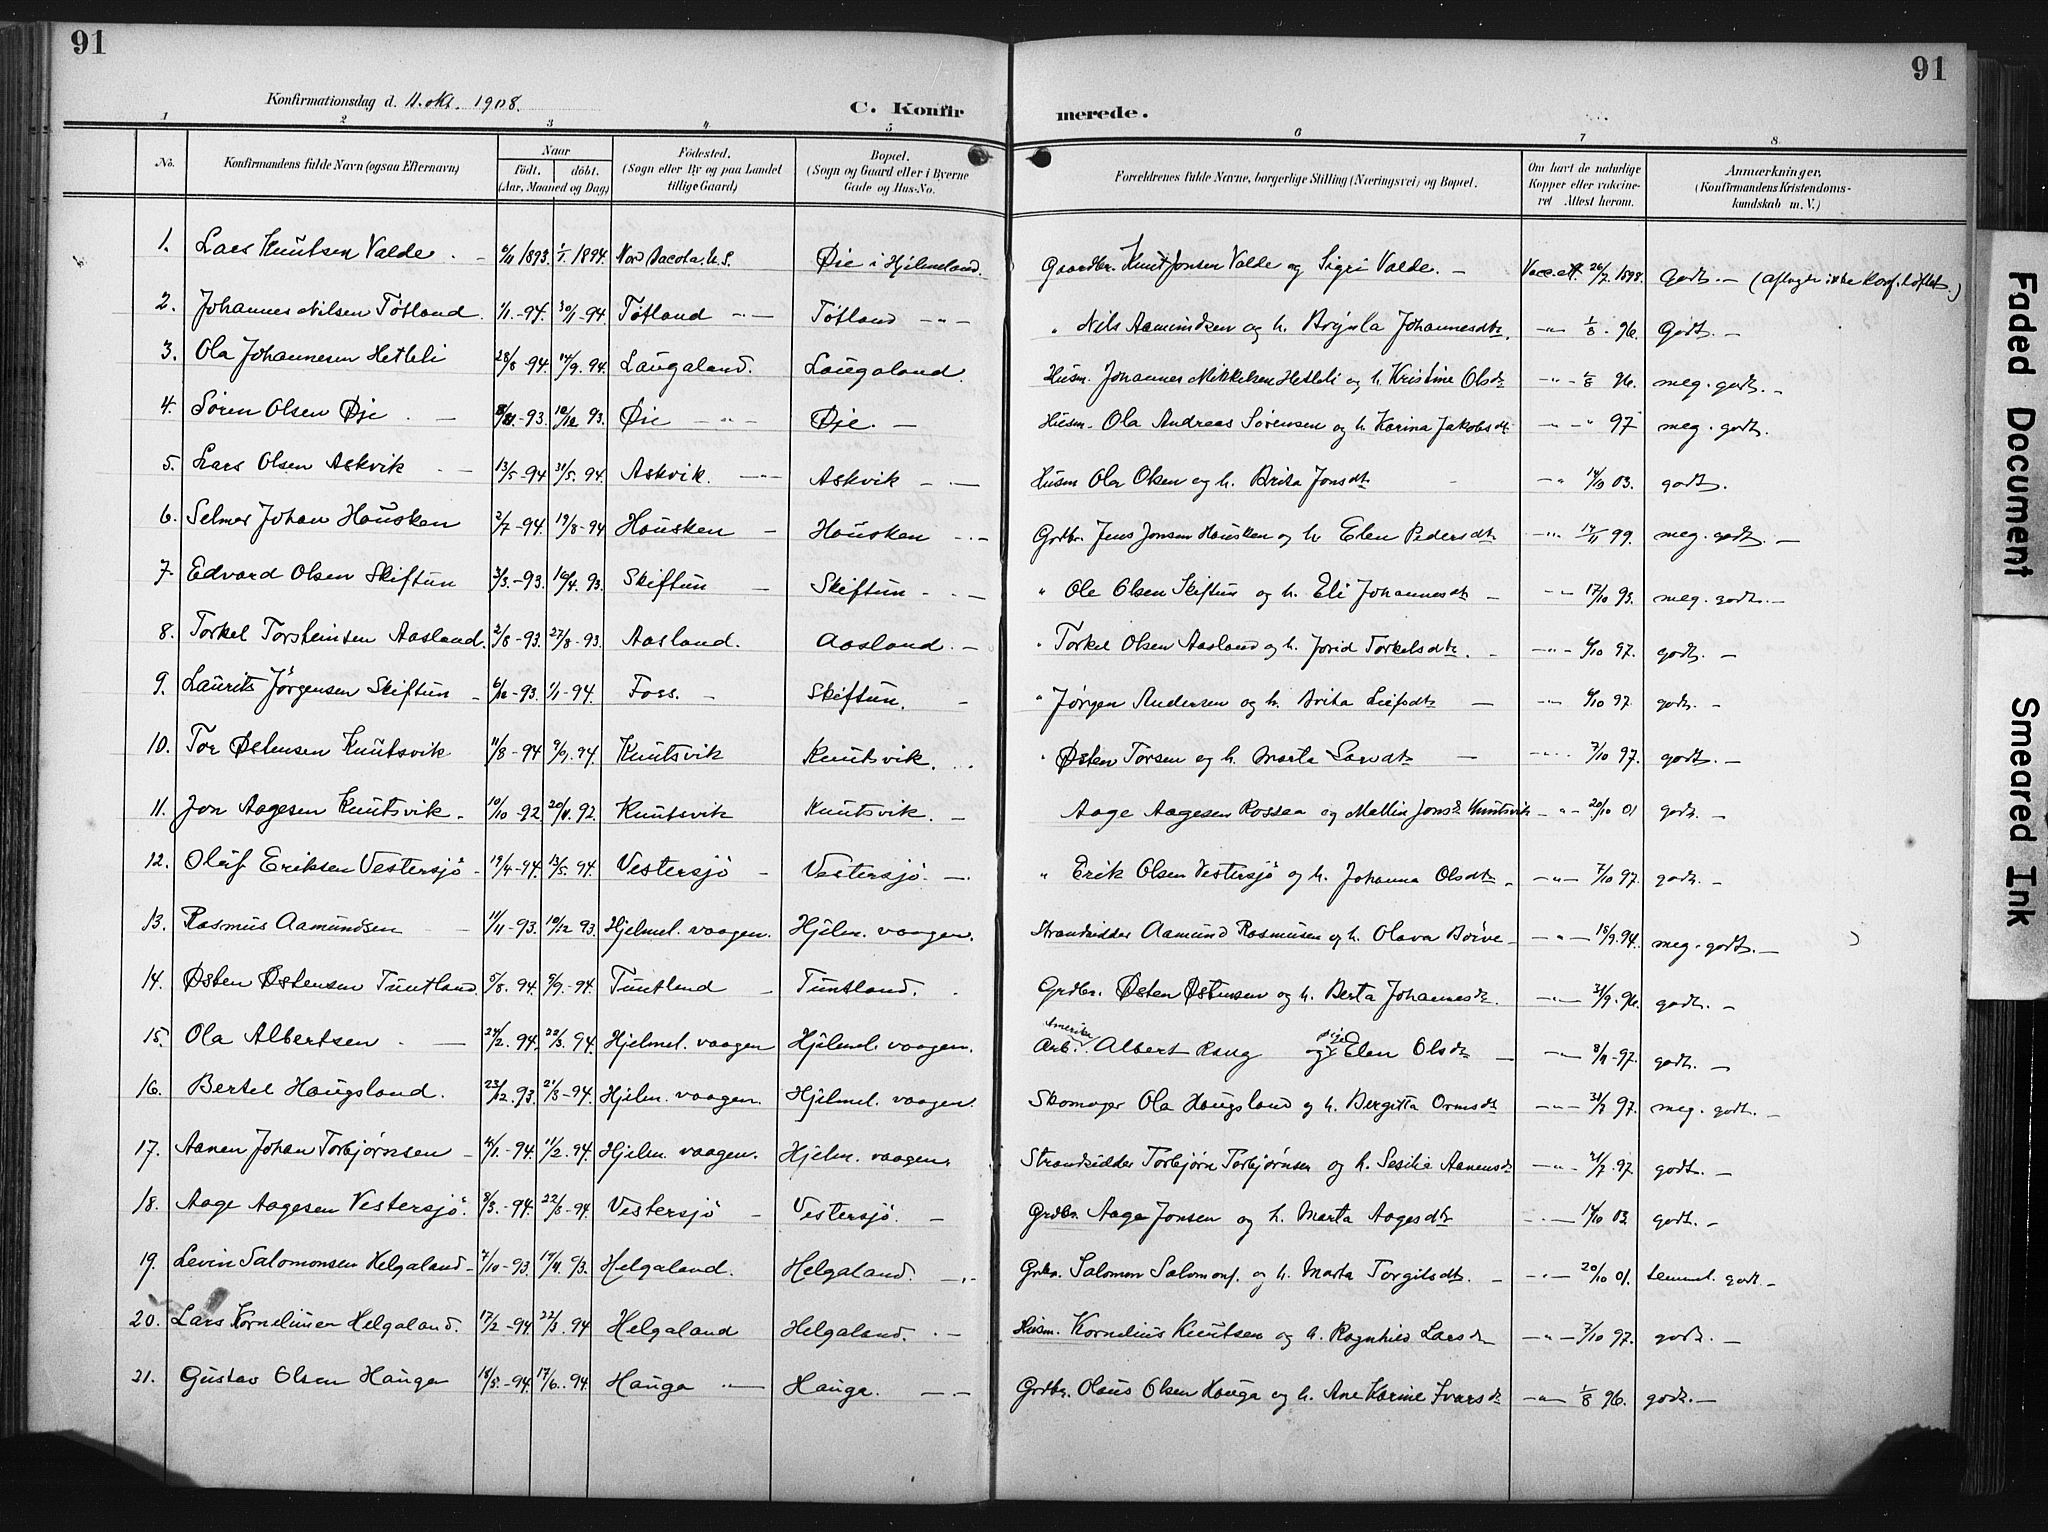 91
91
Konfirmationsdag d. 11. okt. 1908.
C. Konfir merede.
1 2 3 4 5 6 7 8
No.
Konfirmandens fulde Navn (ogsaa Efternavn)
Naar
Født. døbt.
(Aar, Maaned og Dag)
Födested.
(Sogn eller By og paa Landet
tillige Gaard)
Bopæl.
(Sogn og Gaard eller i Byerne
Gade og Hus-No.
Forældrenes fulde Navne, borgerlige Stilling (Næringsvei) og Bopæl.
Om havt de naturlige
Kopper eller vakcine-
ret Attest herom.
Anmærkninger,
(Konfirmandens Kristendoms-
kundskab m. V.)
1. Lars Knutsen Valde. 6/11 1893. 1/1. 1894. Nord Dacota. U.S. Øie i Hjelmeland. Gaardbr. Knut Jonsen Valde og Sigri Valde. — Vacc. att. 26/7 1898. Godt. — (aflagde ikke Konf. løftet.)
2. Johannes Nilsen Tøtland. 1/1.-94. 30/1-94. Tøtland -"- Tøtland -"- " Nils Aamundsen og h. Brynla Johannesdtr. -"- 1/8. 96. Godt. —
3. Ola Johannesen Hetleli 28/8-94. 14/9. 94. Laugaland. Laugaland. Husm. Johannes Mikkelsen Hetleli og h. Kristine Olsdtr -"- 1/8 96. meg. godt. —
4. Søren Olsen Øje. — 93. 10/12 93. Øie -"- Øje. — Husm. Ola Andreas Sørensen og h. Karina Jakobsdt. -"- " 97 meg. godt.
5. Lars Olsen Askvik — 13/5-94 31/5. 94. Askvik. -"- Askvik -.- Husm Ola Olsen og h. Brita Jonsdtr -"- 14/10 03. godt.
6. Selmer Johan Housken 2/7-94. 19/8-94 Housken — Housken -.- Grdbr. Jens Jonsen Housken og h. Elen Pedersdtr -"- 14/11 99. meg. godt. —
7. Edvard Olsen Skiftun 3/3.-93. 16/4. 93. Skiftun — Skiftun -.- " Ole Olsen Skiftun og h. Eli Johannesdtr — -"- 17/10 93. meg. godt. —
8. Torkel Torsteinsen Aasland. 2/8-93. 27/8-93. Aasland. Aasland. — " Torkel Olsen Aasland og h. Jorid Torkelsdtr. — -"- 6/10 97. godt. —
9. Laurits Jørgensen Skiftun — 6/12-93. 1/1-94. Foss. — Skiftun. — " Jørgen Andersen og h. Brita Leifsdtr — -"- 6/10 97. godt. —
10. Tor Østensen Knutsvik 11/8-94 9/9. 94. Knutsvik Knutsvik. " Østen Torsen og h. Marta Larsdtr — -"- 7/10 97. godt. —
11. Jon Aagesen Knutsvik. 10/10-92 20/11. 92. Knutsvik Knutsvik. — Aage Aagesen Rossaa og Mallin Jonsd. Knutsvik -"- 20/10 01 godt. —
12. Olaf Eriksen Vestersjö — 19/4-94. 13/5. 94. Vestersjö — Vestersjö. — " Erik Olsen Vestersjö og h. Johanna Olsdtr. -"- 7/10 97. godt. —
13. Rasmus Aamundsen — 11/11-93. 10/12 93. Hjelmel. vaagen. Hjelm. vaagen. Strandsidder Aamund Rasmusen og h. Olava Boive — -"- 15/9. 94. meg. godt. —
14. Østen Østensen Tuntland. 5/8. 94. 9/9.-94. Tuntland — Tuntland. Grdbr. Østen Østensen og h. Berta Johannesdtr. -"- 31/9. 96. godt. —
15. Ola Albertsen. — 24/2. 94. 22/3. 94. Hjelmel. vaagen Hjelmel. vaagen. Arb. Amerika Albert Raug og pige Elen Olsdtr -"- 8/11-97. godt. —
16. Bertel Hougsland. 23/12. 93. 21/3-94. Hjelm. vaagen. Hjelmel. vaagen. Skomager Ola Hougsland og h. Bergitta Ormsdtr -"- 31/7 97. meg. godt. —
17. Aanen Johan Torbjørnsen — 94. 11/2. 94. Hjelm. vaagen. Hjelm. vaagen. Strandsidder Torbjørn Torbjørnsen og h. Sesilie Aanensdtr -"- 21/7. 97. godt. —
18. Aage Aagesen Vestersjö. 8/3.-94. 22/3-94. Vestersjö — Vestersjö. — Grdbr. Aage Jonsen og h. Marta Aagesdtr -"- 14/10 03. godt. —
19. Levin Salomonsen Helgaland — 7/10-93. 19/11. 93. Helgaland. Helgaland. -.- Grdbr. Salomon Salomons. og h. Marta Torgilsdtr. — -"- 20/10 01. temmel. godt. —
20. Lars Korneliusen Helgaland. 17/2-94. 22/3. 94 Helgaland Helgaland. — Husm. Kornelius Knutsen og h. Ragnhild Larsdtr -"- 7/10 97. godt. —
21. Gustav Olsen Hauga 18/5.-94. 17/6. 94. Hauga -"- Hauga. — Grdbr. Olaus Olsen Hauga og h. Ane Karine Ivarsdtr -"- 1/8 96. godt. —
Faded Document
Smeared Ink